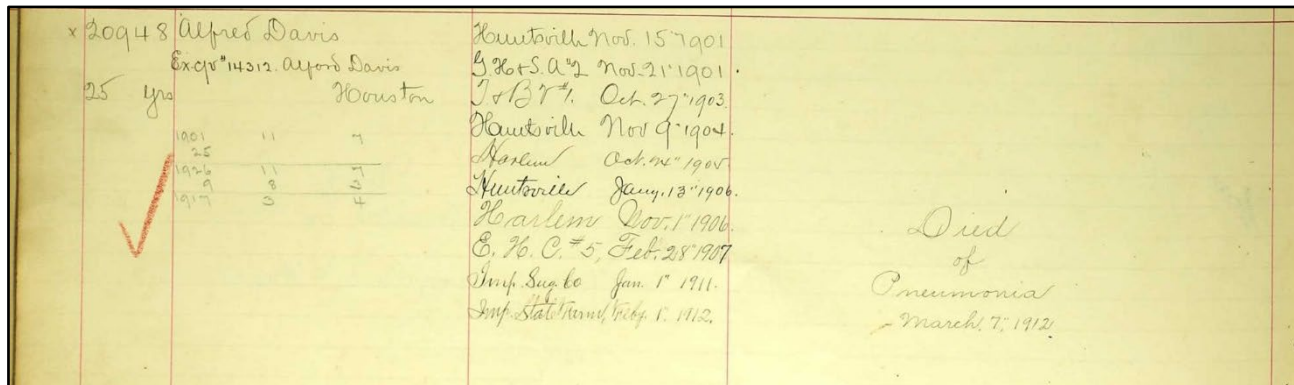 x 20948 Alfred Davis
Ex c/v # 14312. Alford Davis
25 yrs Houston
1901 11 7
25
1926 11 7
9 8 3
1917 3 4
Huntsville Nov. 15" 1901
G. H & S. A # 2 Nov. 21" 1901.
T & B V #1. Oct. 27" 1903.
Huntsville Nov 9" 1904.
Harlem Oct. 24" 1905
Huntsville Jany. 13" 1906.
Harlem Nov. 1" 1906.
E. H. C. # 5, Feb. 28" 1907
Imp. Sug. Co Jan. 1" 1911.
Imp. State Farm, Feby. 1". 1912.
Died
of
Pneumonia
March, 7", 1912